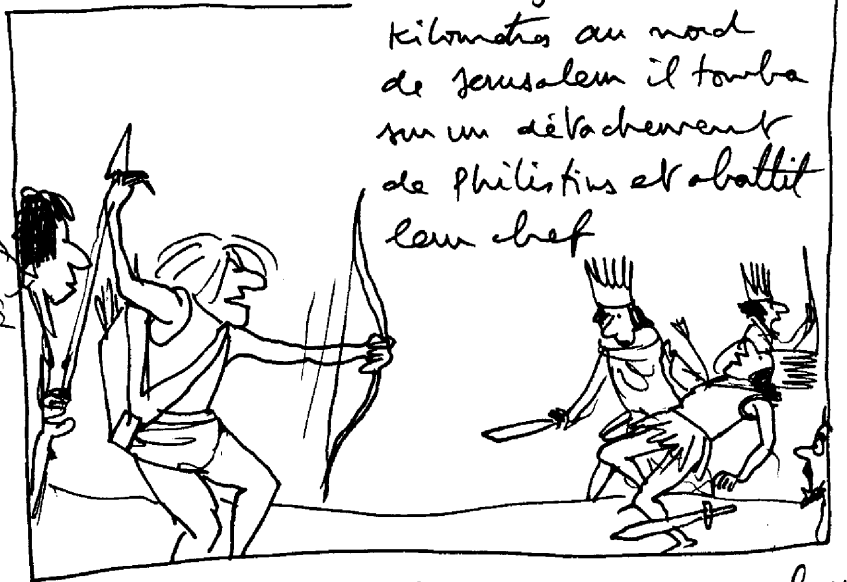 kilomètres au nord
de Jerusalem il tomba
sur un détachement
de Philistins et abattit
leur chef